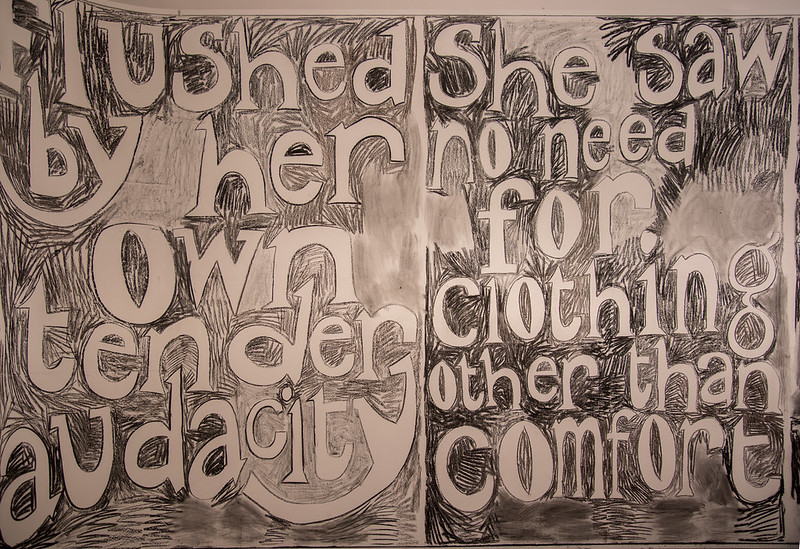 Flushed
by her
own
tender
audacity
She saw
no need
for
clothing
other than
comfort